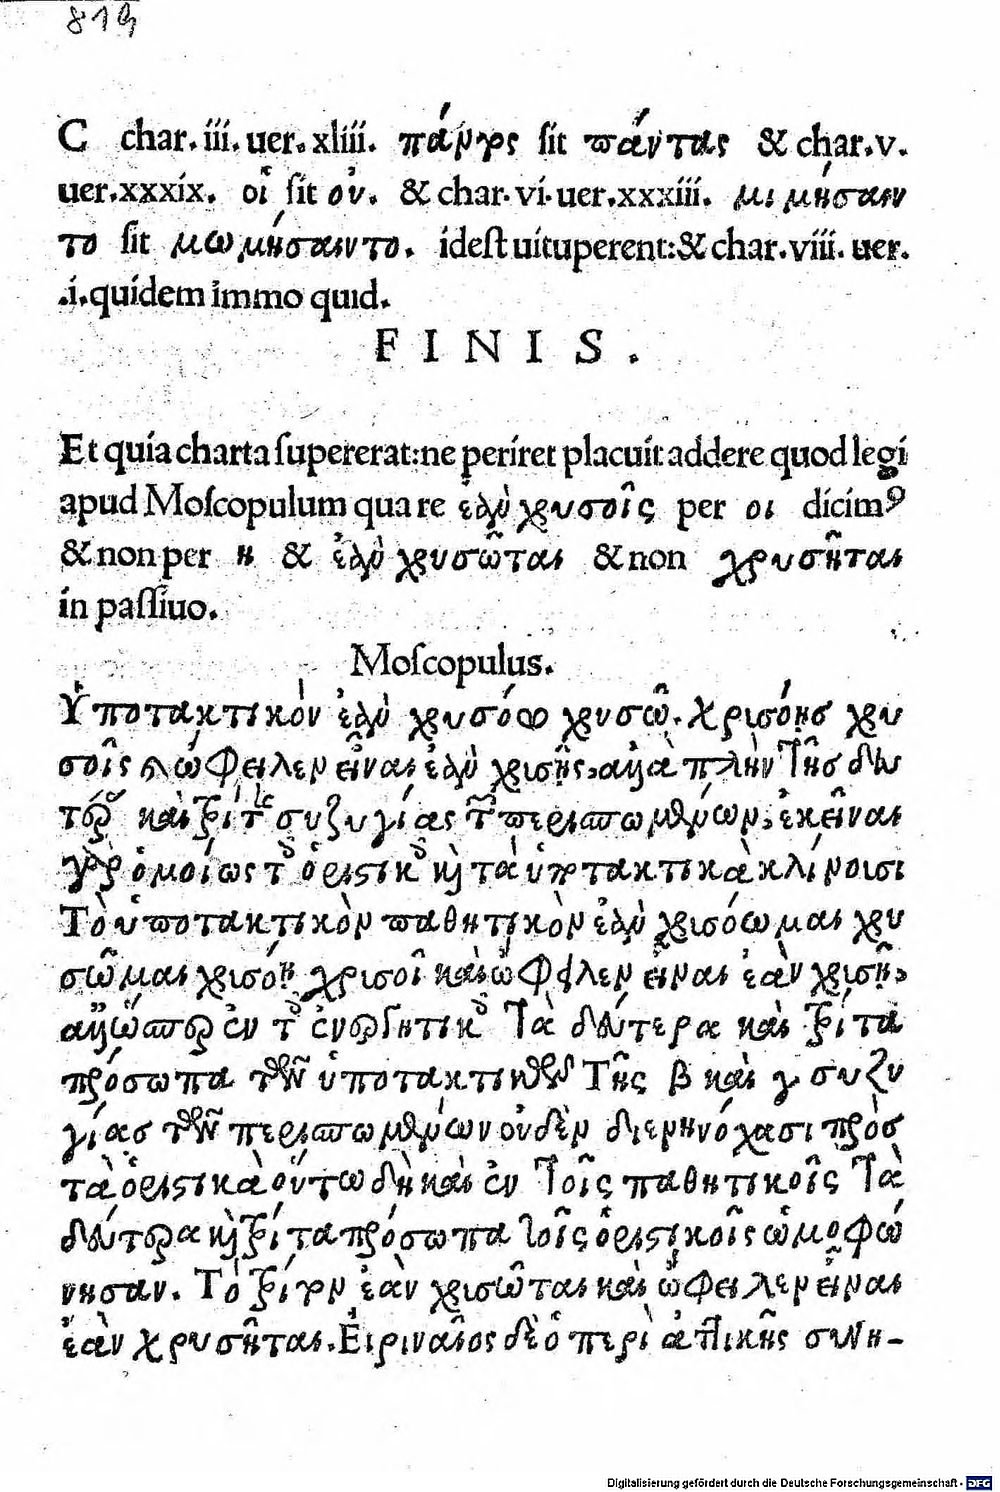 819
C char. iii. uer. xliii. πάντες sit πάντας & char. v.
uer. xxxix. οἷ sit οὐ. & char. vi. uer. xxxiii. μιμήσαιν
το sit μωμήσαιντο. idest uituperent: & char. viii. uer.
.i. quidem immo quid.
FINIS.
Et quia charta ſupererat: ne periret placuit addere quod legi
apud Moſcopulum quare ἐὰν χρυσοῖς per οι dicimꝰ
& non per η & ἐὰν χρυσῶται & non χρυσῆται
in paſſiuo.
Moſcopulus.
Ὑποτακτικὸν ἐὰν χρυσόω χρυσῶ. χρισόῃς χρυ
σοῖς ὤφειλεν εἶναι ἐὰν χρισῇς, ἀλλὰ πλὴν τῆς δευ
τέρας καὶ τρίτης συζυγίας τῶν περισπωμένων, ἐκεῖναι
γὰρ ὁμοίως τοῖς ὁριστικοῖς καὶ τὰ ὑποτακτικὰ κλίνουσι
Τὸ ὑποτακτικὸν παθητικὸν ἐὰν χρισόωμαι χρυ
σῶμαι χρισόῃ χρισοῖ καὶ ὤφειλεν εἶναι ἐὰν χρισῇ,
ἀλλ' ὥσπερ ἐν τοῖς ἐνεργητικοῖς τὰ δεύτερα καὶ τρίτα
πρόσωπα τῶν ὑποτακτικῶν Τῆς β καὶ γ συζυ
γίας τῶν περισπωμένων οὐδὲν διενηνόχασι πρὸς
τὰ ὁριστικὰ οὕτω δὴ καὶ ἐν τοῖς παθητικοῖς τὰ
δεύτερα καὶ τρίτα πρόσωπα τοῖς ὁριστικοῖς ὡμοφώ
νησαν. Τὸ τρίτον ἐὰν χρισῶται καὶ ὤφειλεν εἶναι
ἐὰν χρυσῆται. Εἰριναῖος δὲ ὁ περὶ ἀττικῆς συνη-
Digitalisierung gefördert durch die Deutsche Forschungsgemeinschaft - DFG